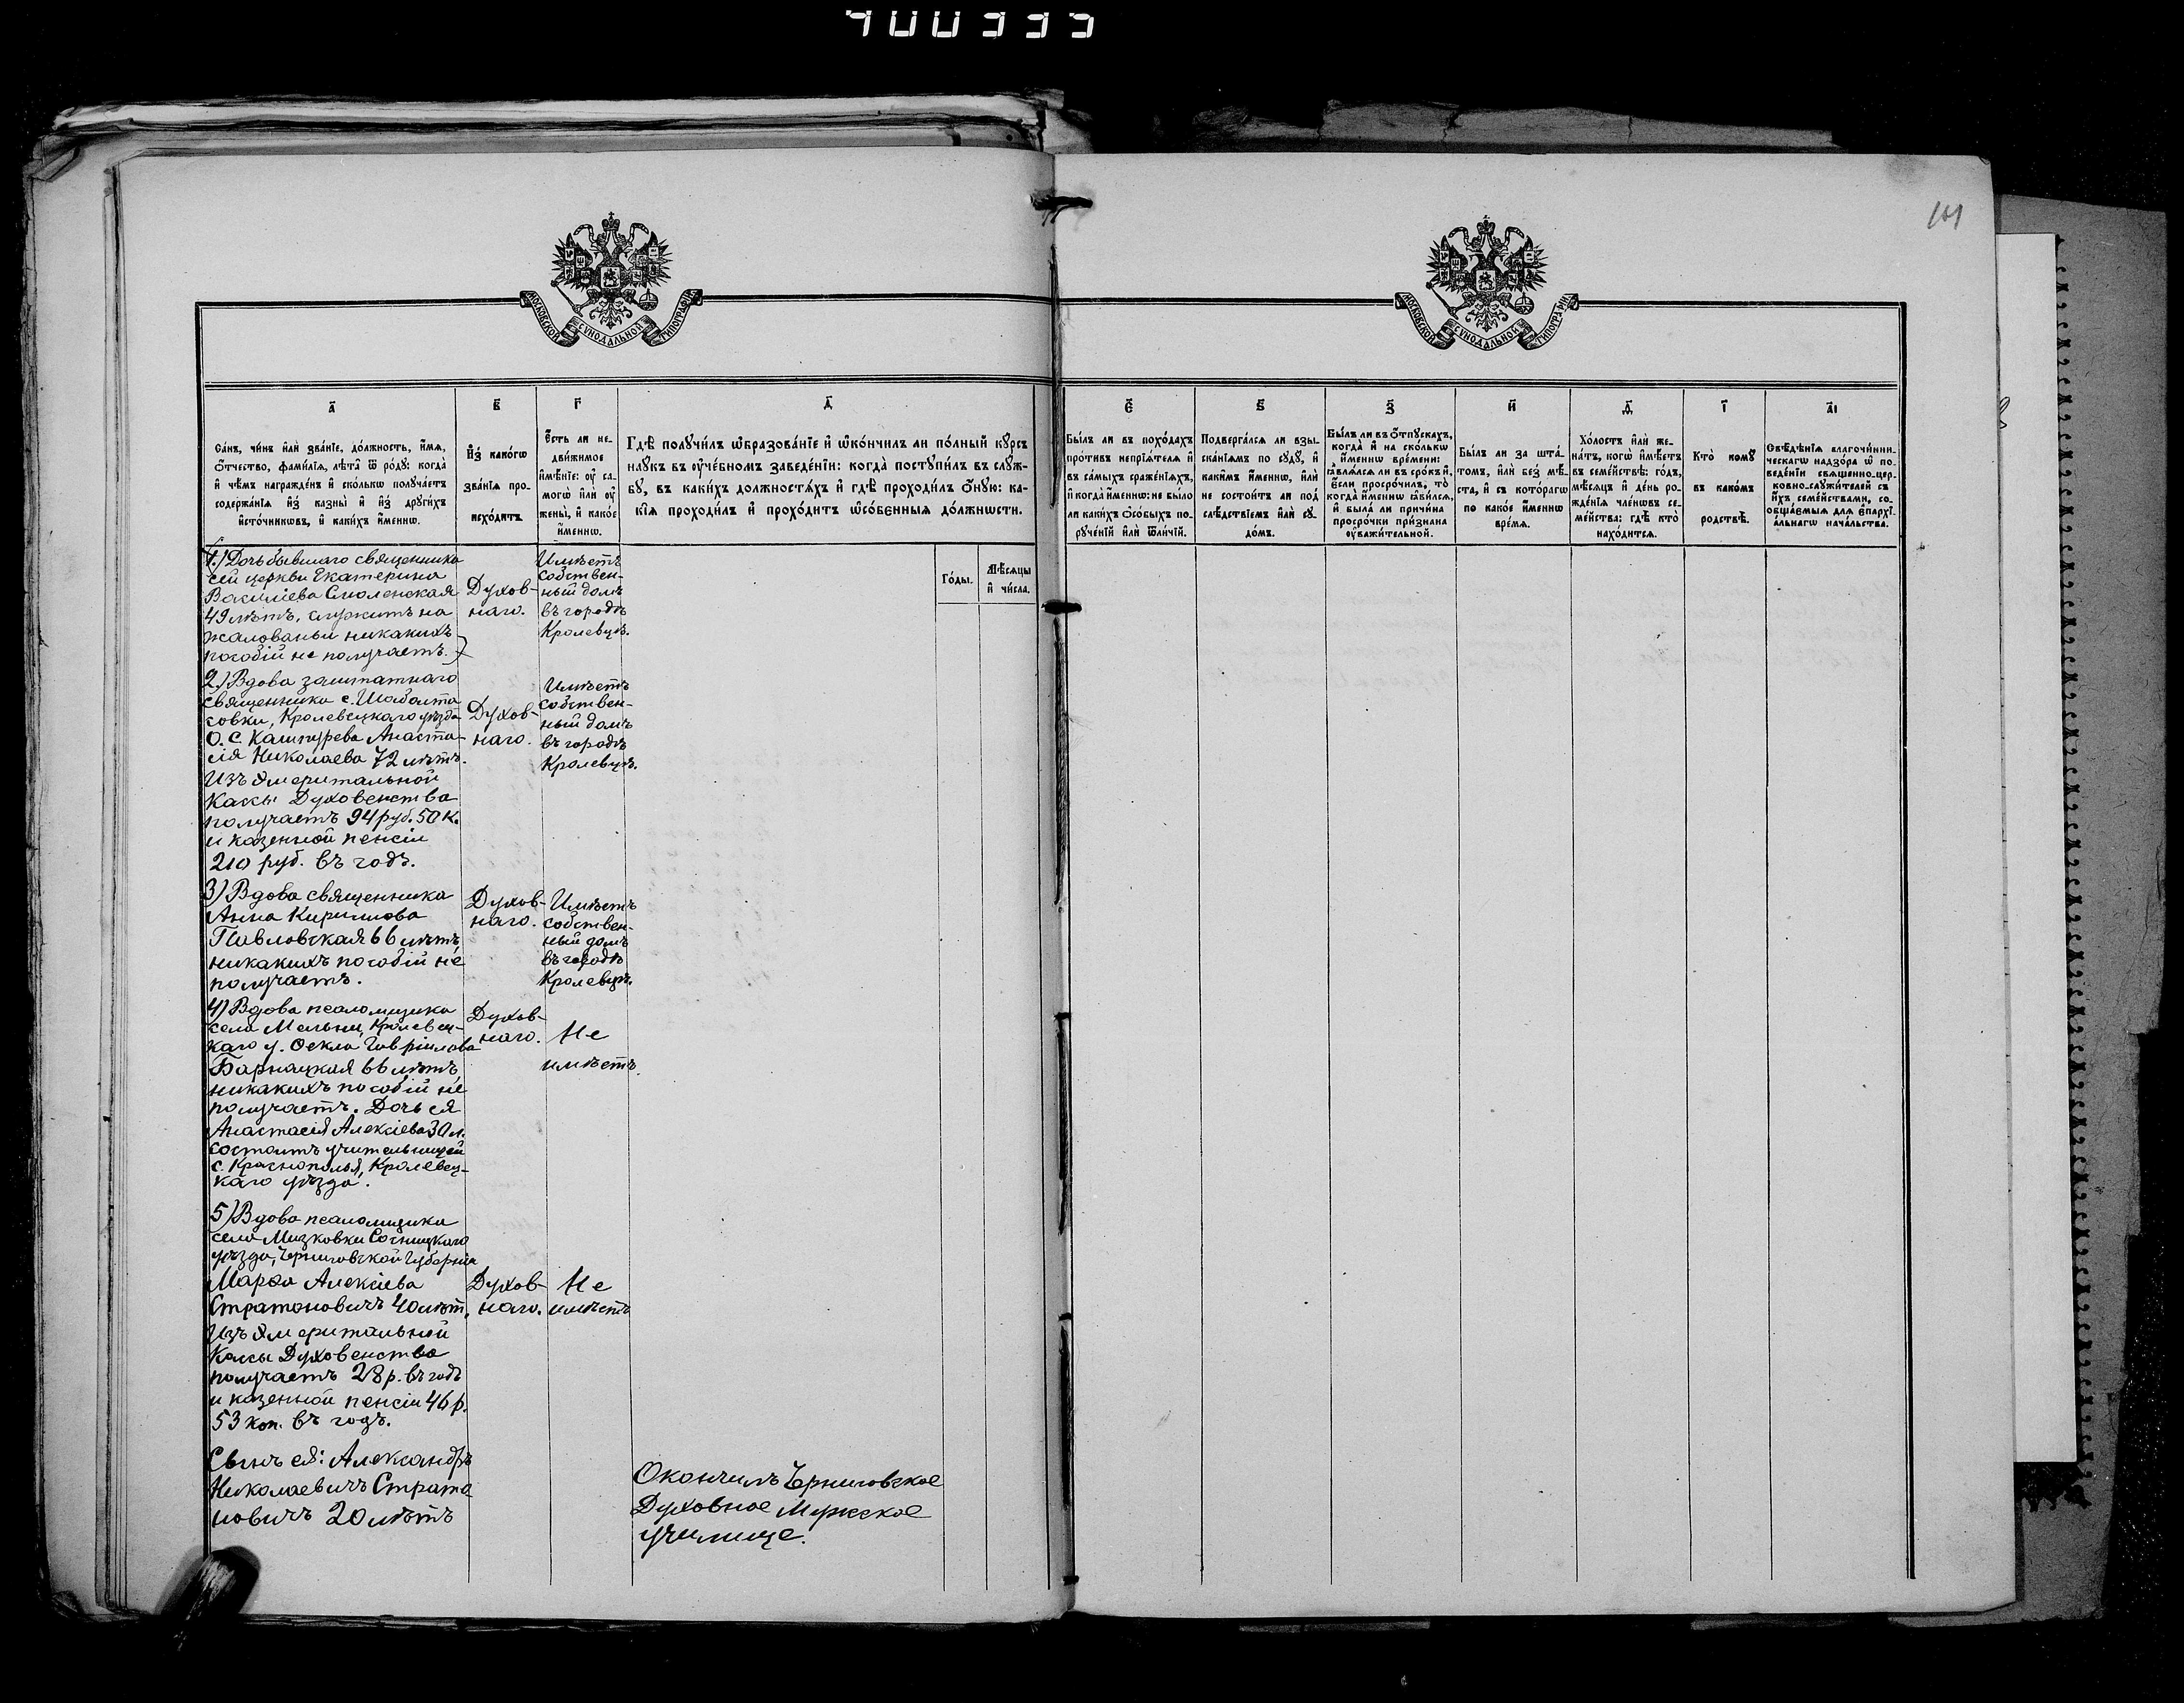 400333
101
МОСКОВСКОЙ СѴНОДАЛЬНОЙ ТИПОГРАФІИ.
МОСКОВСКОЙ СѴНОДАЛЬНОЙ ТИПОГРАФІИ.
а҃
Са́нъ, чи́нъ и҆лѝ зва́нїе, до́лжность, и҆́мя,
ѻ҆́тчество, фами́лїя, лѣ́та ѿ ро́дꙋ: когда̀
и҆ чѣ́мъ награжде́нъ и҆ ско́лькѡ полꙋча́етъ
содержа́нїя и҆з̾ казны̀ и҆ и҆з̾ дрꙋги́хъ
и҆сто́чникѡвъ, и҆ каки́хъ и҆́меннѡ.
в҃
И҆з̾ како́гѡ
зва́нїя про-
исхо́дитъ.
г҃
Є҆́сть ли не-
дви́жимое
и҆мѣ́нїе: ᲂу҆ са-
могѡ̀ и҆лѝ ᲂу҆
жены̀, и҆ како́е
и҆́меннѡ.
д҃
Гдѣ̀ полꙋчи́лъ ѡ҆бразова́нїе и҆ ѡ҆ко́нчилъ ли по́лный кꙋ́рсъ
наꙋ́къ въ ᲂу҆че́бномъ заведе́нїи: когда̀ постꙋпи́лъ въ слꙋ́ж-
бꙋ, въ каки́хъ должностѧ́хъ и҆ гдѣ̀ проходи́лъ ѻ҆́нꙋю: ка-
кі́я проходи́лъ и҆ прохо́дитъ ѡ҆со́бенныя до́лжнѡсти.
Го́ды.
Мѣ́сѧцы
и҆ чи́сла.
є҃
Бы́лъ ли въ похо́дахъ
про́тивъ непрїѧ́телѧ и҆
въ са́мыхъ сраже́нїѧхъ,
и҆ когда̀ и҆́меннѡ: не бы́ло
ли каки́хъ ѻ҆со́быхъ по-
рꙋче́нїй и҆лѝ ѿли́чїй.
ѕ҃
Подверга́лсѧ ли взы-
ска́нїѧмъ по сꙋдꙋ̀, и҆
каки́мъ и҆́меннѡ, и҆лѝ
не состои́тъ ли под̾
слѣ́дствїемъ и҆лѝ сꙋ-
до́мъ.
з҃
Бы́лъ ли въ ѻ҆́тпꙋскахъ,
когда̀ и҆ на ско́лькѡ
и҆́меннѡ вре́мени:
ꙗ҆влѧ́лсѧ ли въ сро́къ и҆,
є҆́сли просро́чилъ, то̀
когда̀ и҆́меннѡ ꙗ҆ви́лсѧ,
и҆ была̀ ли причи́на
просро́чки при́знана
ᲂу҆важи́тельной.
и҃
Бы́лъ ли за шта́-
томъ, и҆лѝ без̾ мѣ́-
ста, и҆ съ кото́рагѡ
по како́е и҆́меннѡ
вре́мѧ.
ѳ҃
Хо́лостъ и҆лѝ же-
на́тъ, когѡ̀ и҆мѣ́етъ
въ семе́йствѣ: го́дъ,
мѣ́сѧцъ и҆ де́нь ро-
жде́нїѧ чле́нѡвъ се-
ме́йства: гдѣ̀ кто̀
нахо́дитсѧ.
і҃
Кто̀ комꙋ̀
въ како́мъ
родствѣ̀.
а҃і
Свѣ́дѣнїѧ благочи́нни-
ческагѡ надзо́ра ѡ҆ по-
веде́нїи свѧще́нно-цер-
ко́вно-слꙋжи́телей съ
и҆́хъ семе́йствами, со-
обща́ємыѧ длѧ є҆парxї-
а́льнагѡ нача́льства.
1.) Дочь бывшаго священника
сей церкви Екатерина
Василіева Смоленская
49 лѣтъ, служитъ на
жалованьи никакихъ
пособій не получаетъ.)
Духов-
наго.
Имѣетъ
собствен-
ный домъ
въ городѣ
Кролевцѣ.
2.) Вдова заштатнаго
священника с. Шабалта
совки, Кролевецкаго уѣзда
О. С. Кашпурева Анаста-
сія Николаева 72 лѣтъ.
Изъ эмеритальной
Кассы Духовенства
получаетъ 94 руб. 50 к.
и казенной пенсіи
210 руб. въ годъ.
Духов-
наго.
Имѣетъ
собствен-
ный домъ
въ городѣ
Кролевцѣ.
3) Вдова священника
Анна Кириллова
Павловская 66 лѣтъ,
никакихъ пособій не
получаетъ.
Духов-
наго.
Имѣетъ
собствен-
ный домъ
въ городѣ
Кролевцѣ.
4) Вдова псаломщика
села Мельни, Кролевец-
каго у. Ѳекла Гавріилова
Барнацкая 66 лѣтъ,
никакихъ пособій не
получаетъ. Дочь ея
Анастасія Алексіева 30 л.
состоитъ учительницей
с. Краснополья, Кролевец-
каго уѣзда.
Духов-
наго.
Не
имѣетъ.
5) Вдова псаломщика
села Мизковки Сосницкаго
уѣзда, Черниговской Губерніи
Марѳа Алексіева
Стратоновичъ 40 лѣт.,
Изъ эмеритальной
Кассы Духовенства
получаетъ 28 р. въ годъ
и казенной пенсіи 46 р.
53 коп. въ годъ.
Духов-
наго.
Не
имѣетъ
Сынъ ея: Александръ
Николаевичъ Страто
новичъ 20 лѣтъ
Окончилъ Черниговское
Духовное Мужское
училище.